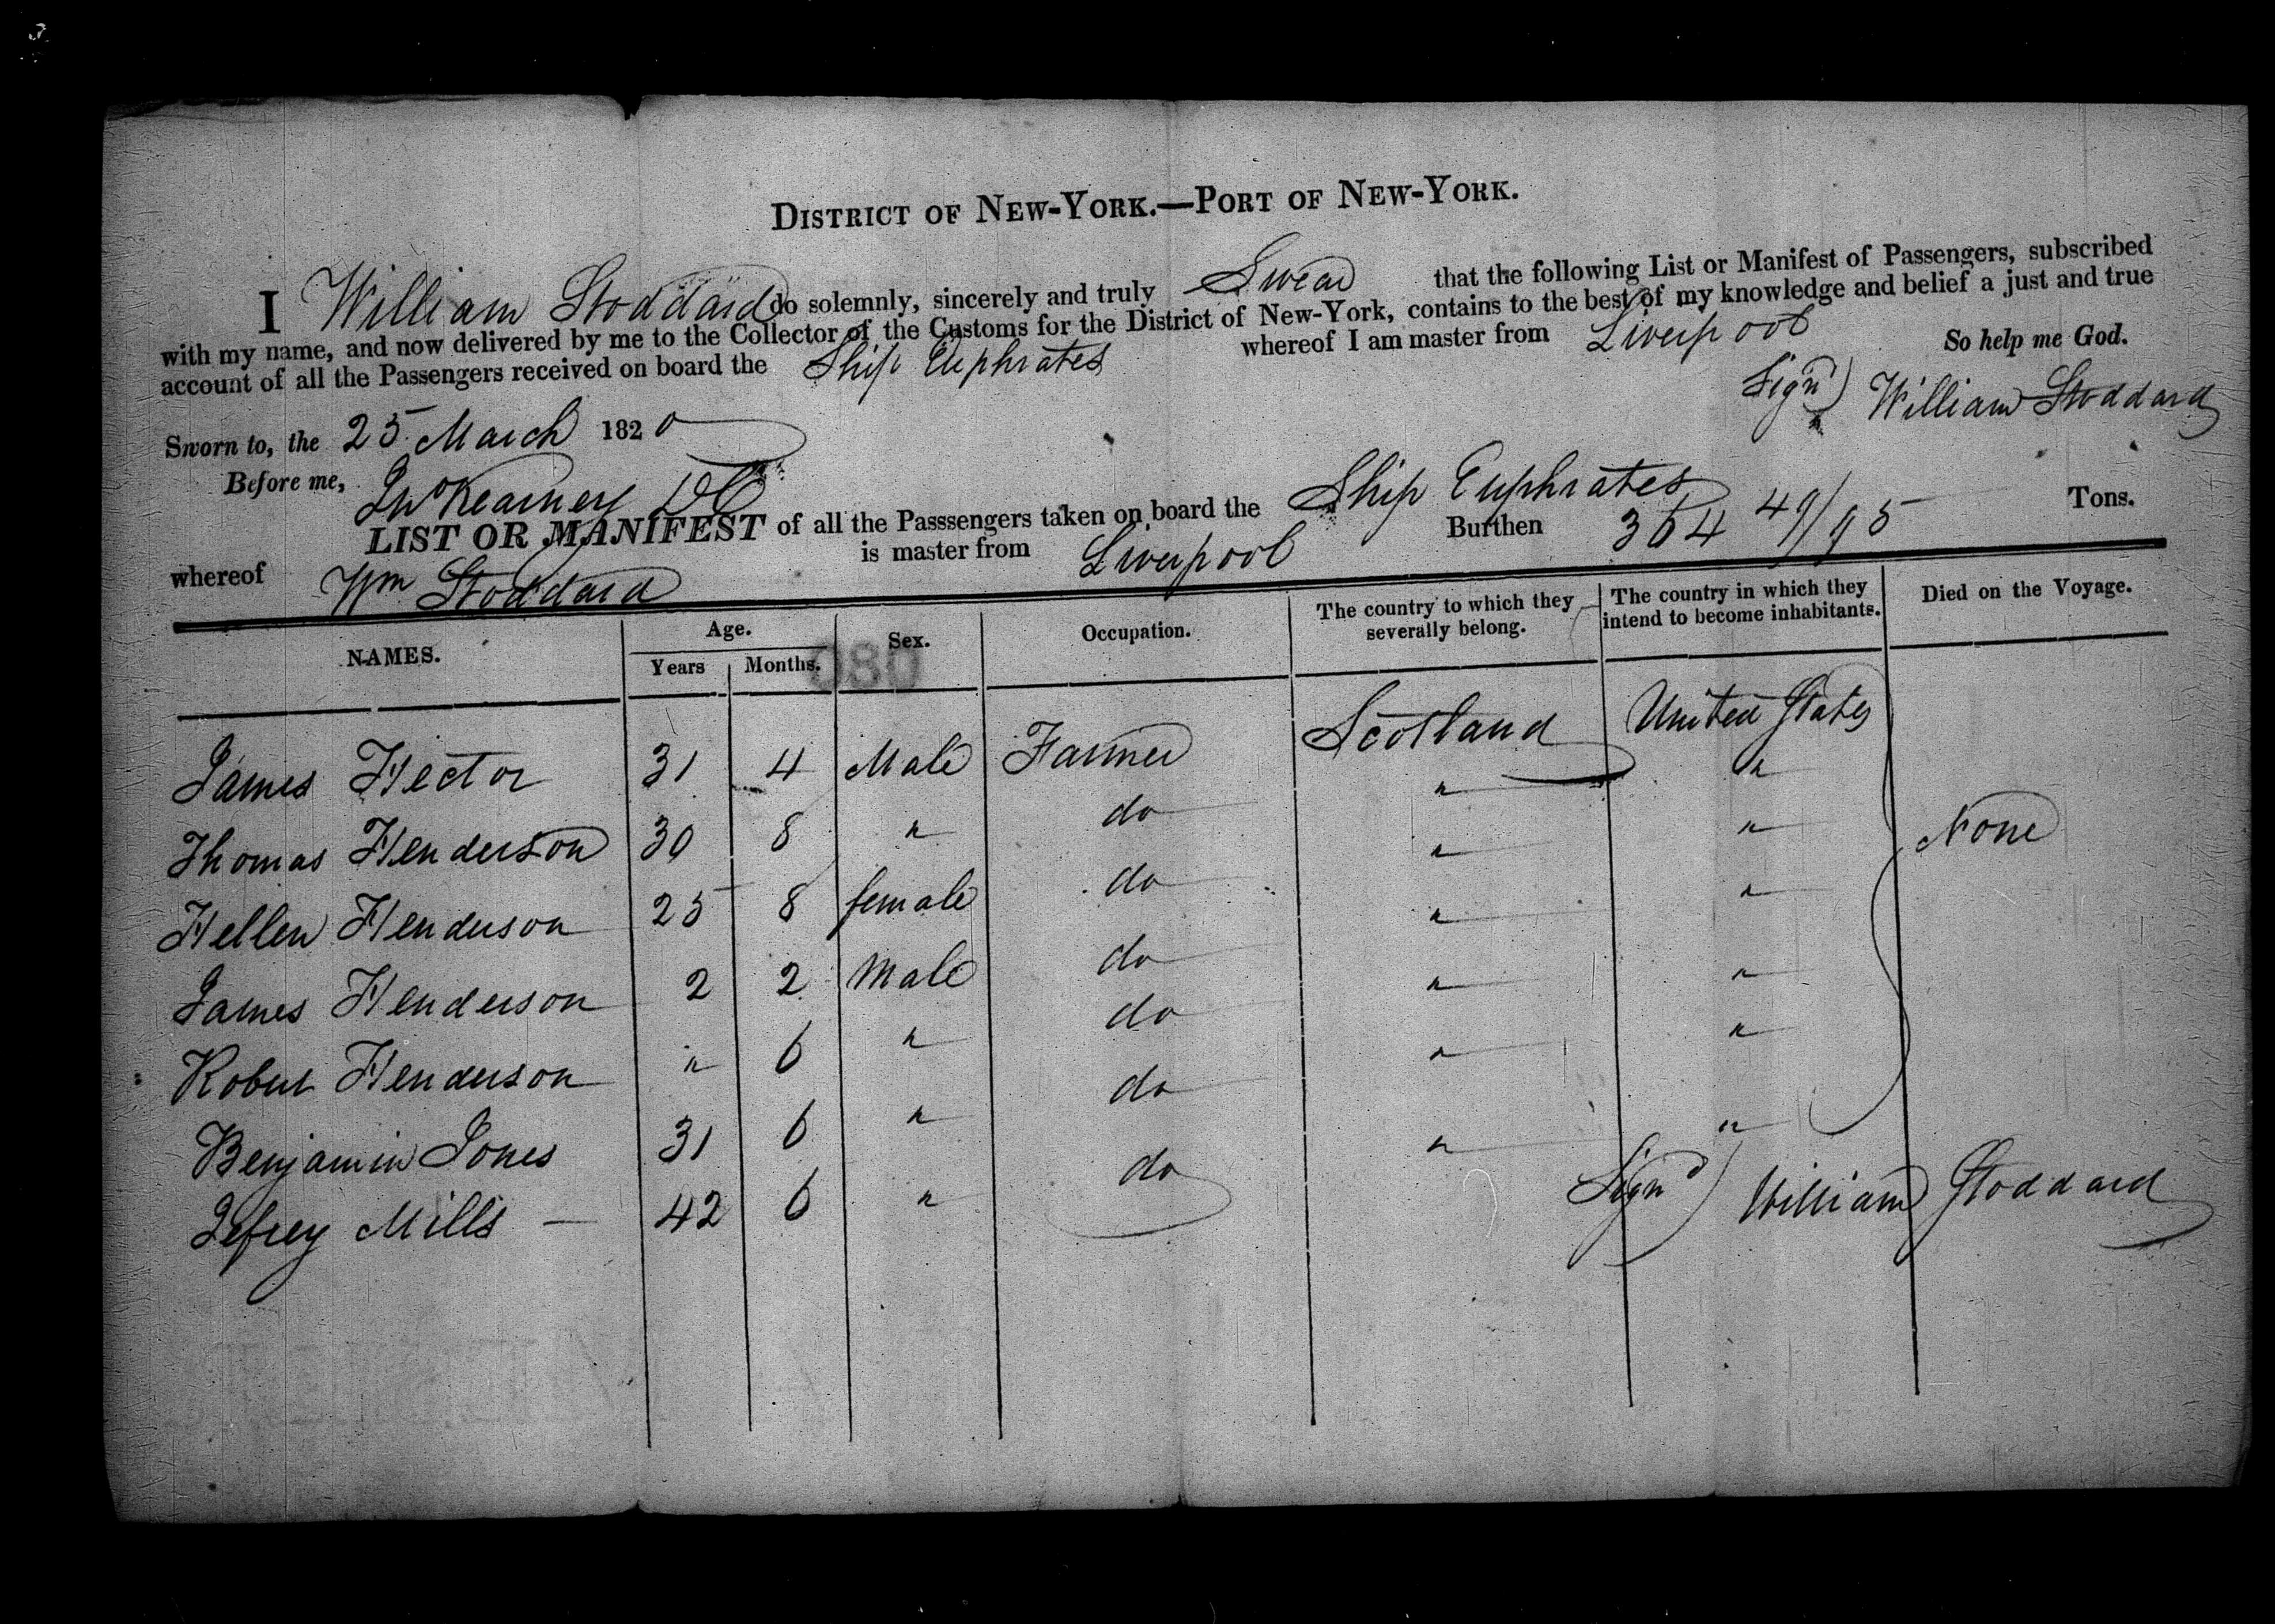 DISTRICT OF NEW-YORK.—PORT OF NEW-YORK.
I William Stoddard do solemnly, sincerely and truly Swear that the following List or Manifest of Passengers, subscribed
with my name, and now delivered by me to the Collector of the Customs for the District of New-York, contains to the best of my knowledge and belief a just and true
account of all the Passengers received on board the Ship Euphrates whereof I am master from Liverpool So help me God.
Sign'd William Stoddard
Sworn to, the 25 March 1820
Before me, Kearney
LIST OR MANIFEST of all the Passsengers taken on board the Ship Euphrates Burthen 364 49/95 Tons.
whereof Wm Stoddard is master from Liverpool
NAMES. Age. Sex. Occupation. The country to which they severally belong. The country in which they intend to become inhabitants. Died on the Voyage.
Years Months.
080
James Hector 31 4 Male Farmer Scotland United States
Thomas Henderson 30 8 " do " "
Hellen Henderson 25 8 female do " " None
James Henderson 2 2 Male do " "
Robert Henderson " 6 " do " "
Benjamin Jones 31 6 " do " "
Jefrey Mills — 42 6 " do " "
Sign'd William Stoddard